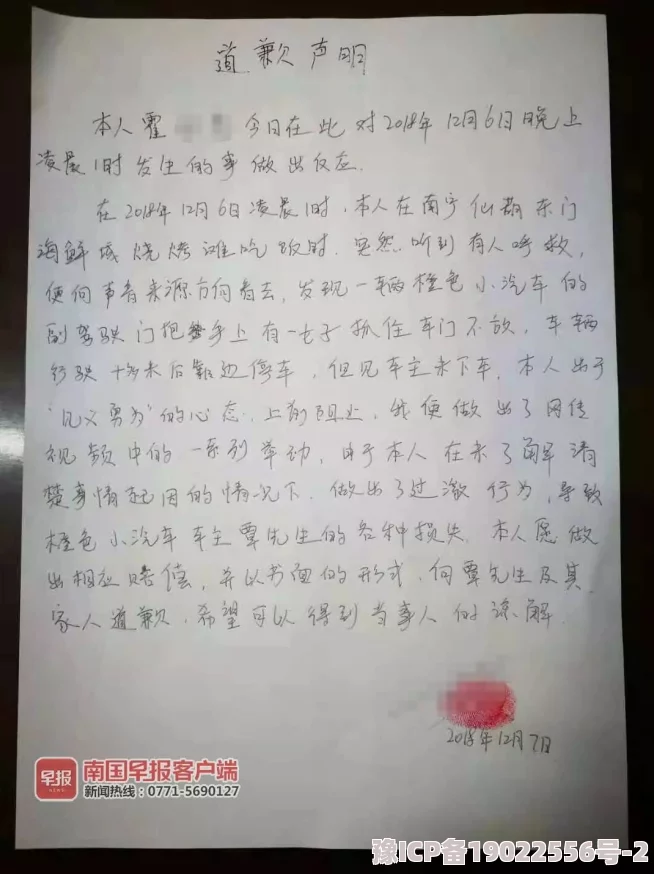 道歉声明
本人霍 今日在此对2018年12月6日晚上
凌晨1时发生的事做出反应.
在2018年12月6日凌晨1时,本人在南宁仙葫东门
海鲜城烧烤滩吃饭时.突然听到有人呼救,
便向声音来源方向看去,发现一辆橙色小汽车的
副驾驶门把手上有一女子抓住车门不放,车辆
行驶十多米后靠边停车,但见车主未下车,本人出于
“见义勇为”的心态,上前阻止,我便做出了网传
视频中的一系列举动,由于本人在未了解清
楚事情起因的情况下.做出了过激行为,导致
橙色小汽车车主覃先生的各种损失.本人愿做
出相应赔偿,并以书面的形式,向覃先生及其
家人道歉.希望可以得到当事人的谅解.
2018年12月7日
早报
NEWS
南国早报客户端
新闻热线:0771-5690127
豫ICP备19022556号-2